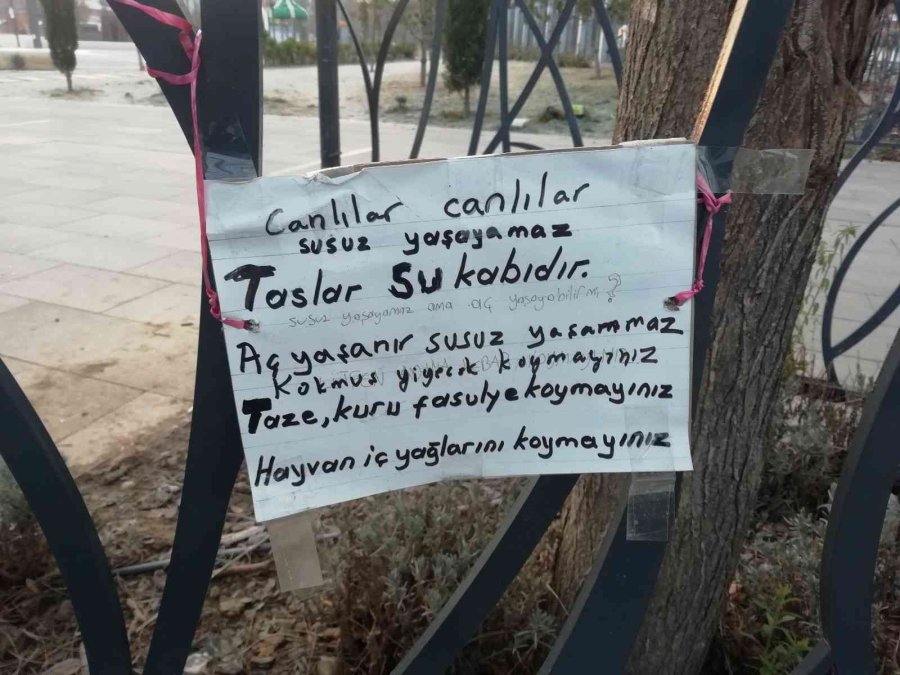 Canlılar canlılar
susuz yaşayamaz
Taslar Su kabıdır.
susuz yaşayamaz ama aç yaşayabilir mi?
Aç yaşanır susuz yaşammaz
Kokmuş yiyecek koymayınız
Taze, kuru fasulye koymayınız
Hayvan iç yağlarını koymayınız